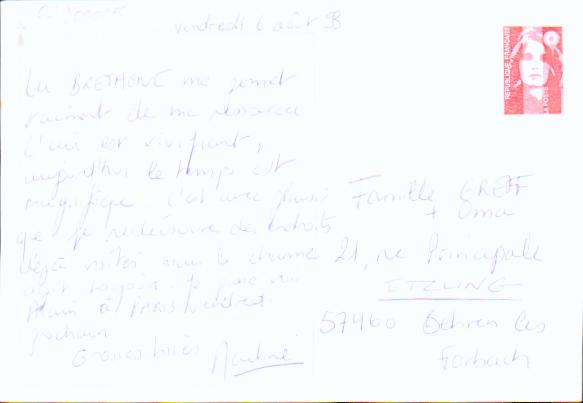 vendredi 6 août 93
La BRETAGNE me permet
vraiment de me ressourcer
L'air est vivifiant,
aujourd'hui le temps est
magnifique. C'est avec plaisir
que je redécouvre des endroits
déjà visités mais le charme
agit toujours. Je
Alain à PARIS vendredi
prochain
Grosses bises
Martine
REPUBLIQUE FRANÇAISE
LA POSTE
Famille GREFF
+ Oma
21, rue Principale
ETZLING
57460 Behren les
Forbach